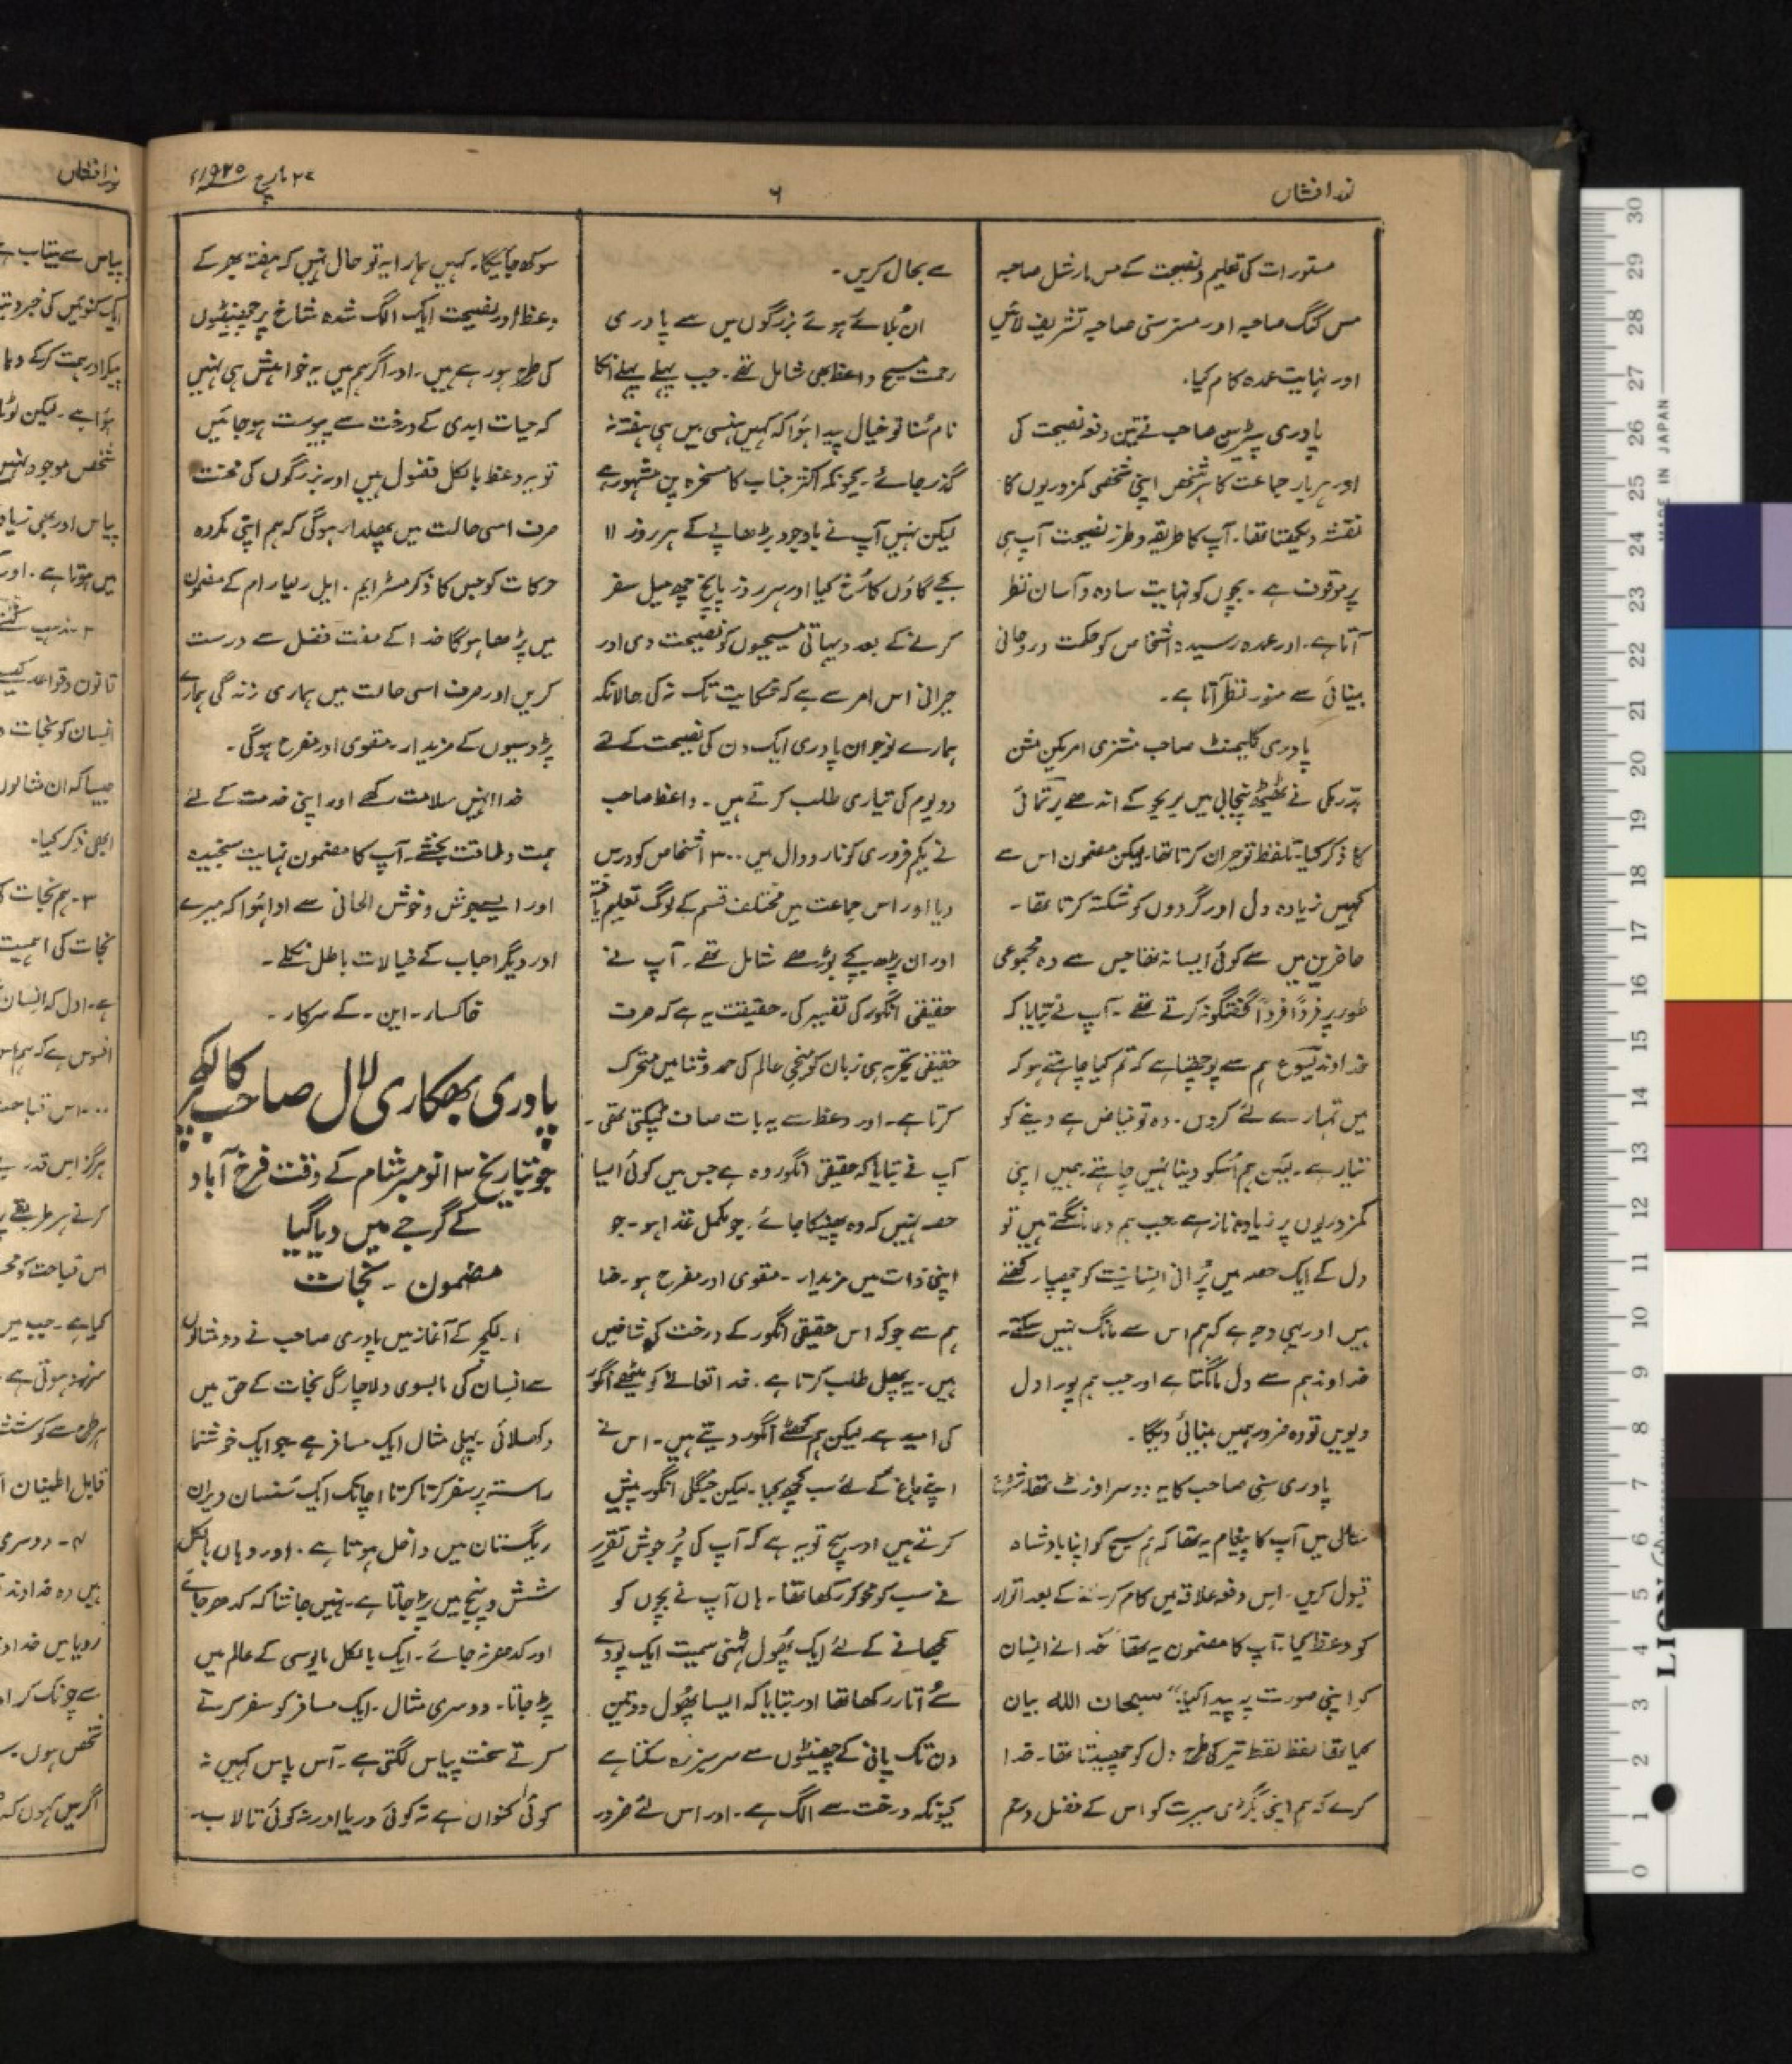 نور افشاں
۶
۲۷ مارچ ۱۹۲۵ء
مستورات کی تعلیم و نصیحت کے مس مارشل صاحبہ
مس کنگ صاحبہ اور مسز سنی صاحبہ تشریف لائیں
اور نہایت عمدہ کام کیا۔
پادری پیٹرسن صاحب نے تین دفعہ نصیحت کی
اور ہر بار جماعت کا ہر شخص اپنی شخصی کمزوریوں کا
نقشہ دیکھتا تھا۔ آپ کا طریقہ و طرز نصیحت آپ ہی
پر موقوف ہے۔ بچوں کو نہایت سادہ و آسان نظر
آتا ہے۔ اور عمدہ رسیدہ اشخاص کو حکمت و روحانی
بینائی سے منور نظر آتا ہے۔
پادری کلیمنٹ صاحب مشنری امریکن مشن
پٹرکی نے ٹھیٹھ پنجابی میں یریحو کے اندھے برتمائی
کا ذکر کیا۔ تلفظ تو حیران کرتا تھا۔ لیکن مضمون اس سے
کہیں زیادہ دل اور گردوں کو شکستہ کرتا تھا۔
حاضرین میں سے کوئی ایسا نہ تھا جس سے وہ مجموعی
طور پر فرداً فرداً گفتگو نہ کرتے تھے۔ آپ نے بتایا کہ
خداوند یسوع ہم سے پوچھتا ہے کہ تم کیا چاہتے ہو کہ
میں تمہارے لئے کروں۔ وہ تو فیاض ہے دینے کو
تیار ہے۔ لیکن ہم اُسکو دینا نہیں چاہتے۔ ہمیں اپنی
کمزوریوں پر زیادہ ناز ہے۔ جب ہم دعا مانگتے ہیں تو
دل کے ایک حصہ میں پُرانی انسانیت کو چھپا رکھتے
ہیں اور یہی وجہ ہے کہ ہم اس سے مانگ نہیں سکتے۔
خداوند ہم سے دل مانگتا ہے اور جب ہم پورا دل
دیویں تو وہ ضرور ہمیں بینائی دیگا۔
پادری سنی صاحب کا یہ دوسرا وزٹ تھا۔ شروع
سال میں آپ کا پیغام یہ تھا کہ ہم مسیح کو اپنا بادشاہ
قبول کریں۔ اِس دفعہ علاقہ میں کام کرنے کے بعد اتوار
کو وعظ کیا۔ آپ کا مضمون یہ تھا "خدا نے انسان
کو اپنی صورت پہ پیدا کیا"۔ سبحان اللہ بیان
کیا تھا لفظ لفظ تیر کی طرح دل کو چھیدتا تھا۔ خدا
کرے کہ ہم اپنی بگڑی سیرت کو اس کے فضل و رحم
سے بحال کریں۔
ان بُلائے ہوئے بزرگوں میں سے پادری
رحمت مسیح واعظ بھی شامل تھے۔ جب پہلے پہلے انکا
نام سُنا تو خیال پیدا ہوا کہ کہیں ہنسی میں ہی ہفتہ نہ
گذر جائے۔ کیونکہ اکثر جناب کا مسخرہ پن مشہور ہے
لیکن نہیں آپ نے باوجود بڑھاپے کے ہر روز ۱۱
بجے گاؤں کا رُخ کیا اور ہر روز پانچ چھ میل سفر
کرنے کے بعد دیہاتی مسیحیوں کو نصیحت دی اور
حیرانی اس امر سے ہے کہ شکایت تک نہ کی حالانکہ
ہمارے نوجوان پادری ایک دن کی نصیحت کے لئے
دو یوم کی تیاری طلب کرتے ہیں۔ واعظ صاحب
نے یکم فروری کو نارووال میں ۳۰۰ اشخاص کو درس
دیا اور اس جماعت میں مختلف قسم کے لوگ تعلیم یافتہ
اور ان پڑھ بچے بوڑھے شامل تھے۔ آپ نے
حقیقی انگور کی تفسیر کی۔ حقیقت یہ ہے کہ صرف
حقیقی تجربہ ہی زبان کو منجی عالم کی حمد و ثنا میں متحرک
کرتا ہے۔ اور وعظ سے یہ بات صاف ٹپکتی تھی۔
آپ نے بتایا کہ حقیقی انگور وہ ہے جس میں کوئی ایسا
حصہ نہیں کہ وہ پھینکا جائے۔ جو مکمل غذا ہو۔ جو
اپنی ذات میں مزیدار۔ مقوی اور مفرح ہو۔ خدا
ہم سے جو کہ اس حقیقی انگور کے درخت کی شاخیں
ہیں۔ یہ پھل طلب کرتا ہے۔ خدا تعالےٰ کو میٹھے انگور
کی امید ہے لیکن ہم کھٹے انگور دیتے ہیں۔ اس نے
اپنے باغ کے لئے سب کچھ کیا۔ لیکن جنگلی انگور پیش
کرتے ہیں اور سچ تو یہ ہے کہ آپ کی پُر جوش تقریر
نے سب کو محو کر رکھا تھا۔ ہاں آپ نے بچوں کو
سمجھانے کے لئے ایک پھُول ٹہنی سمیت ایک پودے
سے اُتار رکھا تھا اور بتایا کہ ایسا پھُول دو تین
دن تک پانی کے چھینٹوں سے سرسبز رہ سکتا ہے
کیونکہ درخت سے الگ ہے۔ اور اس لئے ضرور
سوکھ جائیگا۔ کہیں ہمارا یہ تو حال نہیں کہ ہفتہ بھر کے
وعظ اور نصیحت ایک الگ شدہ شاخ پر چھینٹوں
کی طرح ہو رہے ہیں۔ اور اگر ہم میں یہ خواہش ہی نہیں
کہ حیات ابدی کے درخت سے پیوست ہو جائیں
تو یہ وعظ بالکل فضول ہیں اور بزرگوں کی محنت
صرف اسی حالت میں پھلدار ہوگی کہ ہم اپنی مکروہ
حرکات کو جس کا ذکر مسٹر ایم۔ ایل رلیا رام کے مضمون
میں پڑھا ہوگا خدا کے مفت فضل سے درست
کریں اور صرف اسی حالت میں ہماری زندگی ہمارے
پڑوسیوں کے مزیدار۔ مقوی اور مفرح ہوگی۔
خدا انہیں سلامت رکھے اور اپنی خدمت کے لئے
ہمت و طاقت بخشے۔ آپ کا مضمون نہایت سنجیدہ
اور ایسے جوش و خوش الحانی سے ادا ہُوا کہ میرے
اور دیگر احباب کے خیالات باطل نکلے۔
خاکسار۔ این۔ کے سرکار۔
پادری بھکاری لال صاحب کا لکچر
جو بتاریخ ۱۳ نومبر شام کے وقت فرخ آباد
کے گرجے میں دیا گیا
مضمون۔ نجات
۱۔ لکچر کے آغاز میں پادری صاحب نے دو مثالوں
سے انسان کی مایوسی و لاچارگی نجات کے حق میں
دکھلائی۔ پہلی مثال ایک مسافر ہے جو ایک خوشنما
راستہ پر سفر کرتا کرتا اچانک ایک سُنسان ویران
ریگستان میں داخل ہوتا ہے۔ اور وہاں بالکل
شش و پنج میں پڑ جاتا ہے۔ نہیں جانتا کہ کدھر جائے
اور کدھر نہ جائے۔ ایک بالکل مایوسی کے عالم میں
پڑ جاتا۔ دوسری مثال۔ ایک مسافر کو سفر کرتے
کرتے سخت پیاس لگتی ہے۔ آس پاس کہیں نہ
کوئی کنواں ہے نہ کوئی دریا اور نہ کوئی تالاب۔
30 29 28 27 26 25 24 23 22 21 20 19 18 17 16 15 14 13 12 11 10 9 8 7 6 5 4 3 2 1 0
MADE IN JAPAN